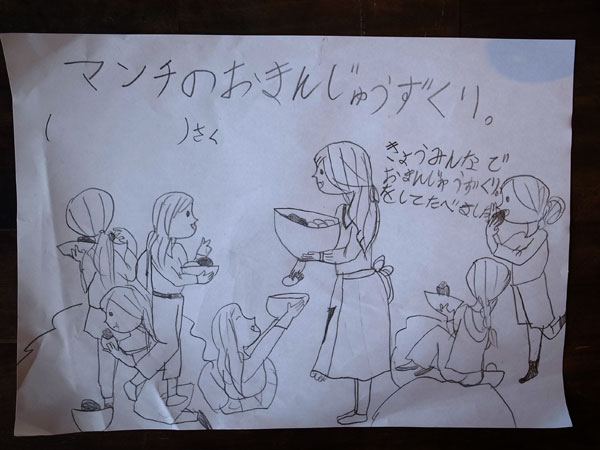 マンチのおまんじゅうずくり。
(　　　　　)さく
きょうみんなで
おまんじゅうずくり
をしてたべました